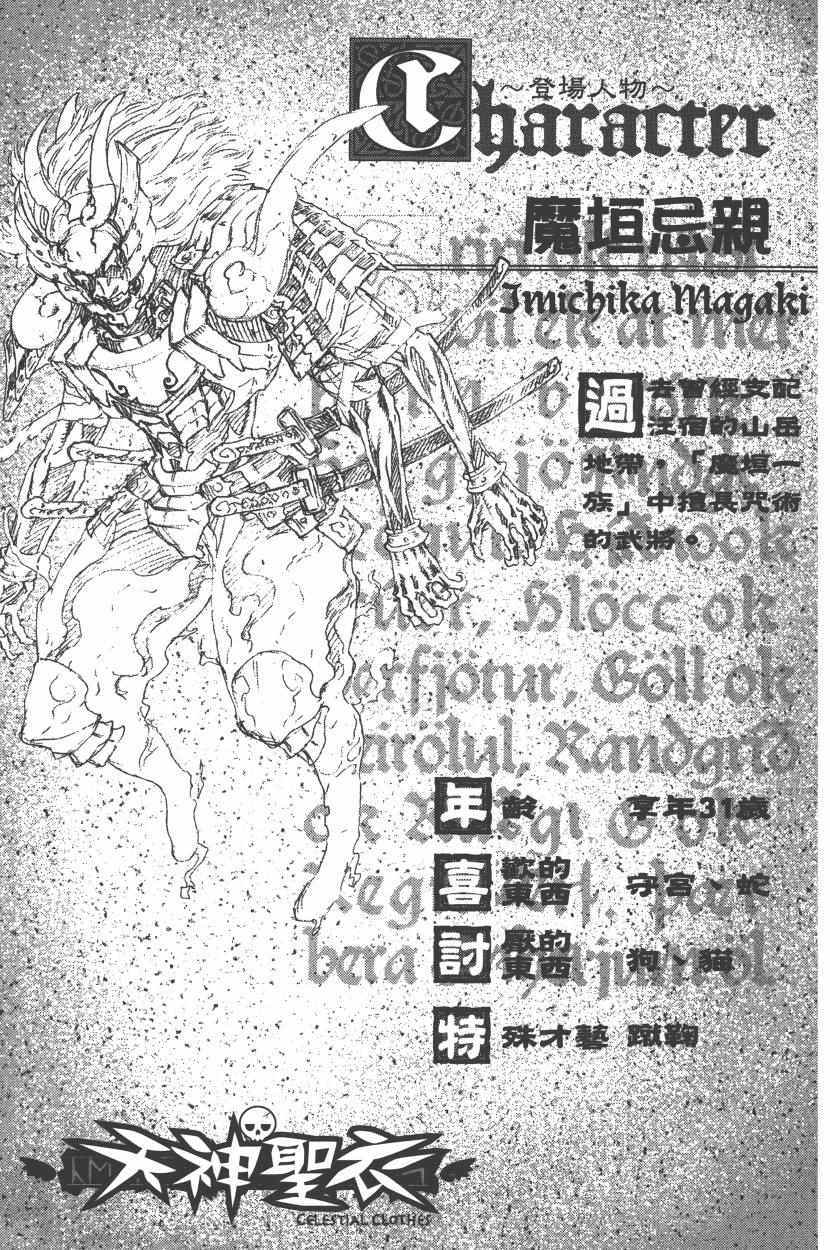 Character
～登場人物～
魔垣忌親
Imichika Magaki
過去曾經支配
汪宿的山岳
地帶。「魔垣一
族」中擅長咒術
的武將。
年齡 享年31歲
喜歡的東西 守宮、蛇
討厭的東西 狗、貓
特殊才藝 蹴鞠
ok
Hlöcc ok
Göll ok
Randgríð
bera
天神聖衣
CELESTIAL CLOTHES